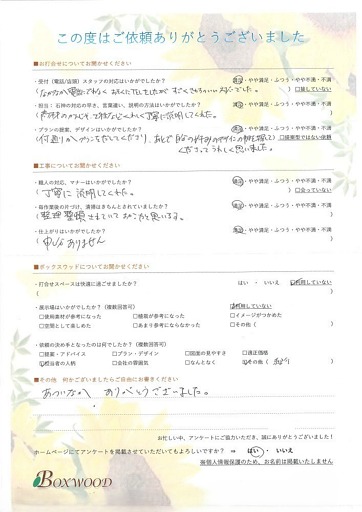 この度はご依頼ありがとうございました
■お打合せについてお聞かせください
・受付(電話/店頭)スタッフの対応はいかがでしたか? 満足・やや満足・ふつう・やや不満・不満
□接していない
・担当:石神の対応の早さ、言葉遣い、説明の方法はいかがでしたか? 満足・やや満足・ふつう・やや不満・不満
丁寧に説明してくれた。
・プランの提案、デザインはいかがでしたか? 満足・やや満足・ふつう・やや不満・不満
□提案型ではない依頼
くださって うれしく思いました。
■工事についてお聞かせください
・職人の対応、マナーはいかがでしたか? 満足・やや満足・ふつう・やや不満・不満
(丁寧に 説明してくれた。 )□会っていない
・自作業後の片づけ、清掃はきちんとされていましたか? 満足・やや満足・ふつう・やや不満・不満
(整理整頓されていて
・仕上がりはいかがでしたか? 満足・やや満足・ふつう・やや不満・不満
(申し分ありません )
■ボックスウッドについてお聞かせください
・打合せスペースは快適に過ごせましたか? はい ・ いいえ □利用していない
( )
・展示場はいかがでしたか?(複数回答可) □利用していない
□使用素材が参考になった □植栽が参考になった □イメージがつかめた
□空間として楽しめた □あまり参考にならなかった □その他( )
・依頼の決め手となったのは何でしたか?(複数回答可)
□提案・アドバイス □プラン・デザイン □図面の見やすさ □適正価格
□担当者の人柄 □会社の雰囲気 □なんとなく □その他(紹介)
■その他 何かございましたらご自由にお書きください
ありがとうございました。
お忙しい中、アンケートにご協力いただき、誠にありがとうございました!
ホームページにてアンケートを掲載させていただいてもよろしいですか? ⇒ はい ・ いいえ
※個人情報保護のため、お名前は掲載いたしません
BOXWOOD